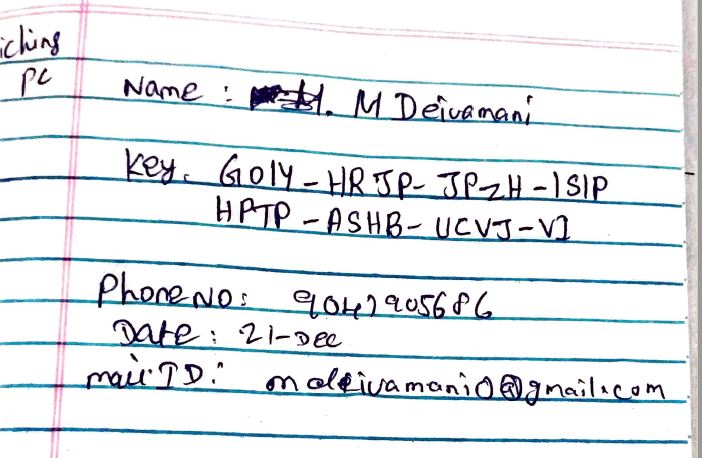 iching
PC
Name : M. M Deivamani
Key. GOIY - HRJP - JPZH - ISIP
HPTP - ASHB - UCVJ - VI
Phone NO: 9047905686
Date : 21-Dec
mail ID: mdeivamani0@gmail.com